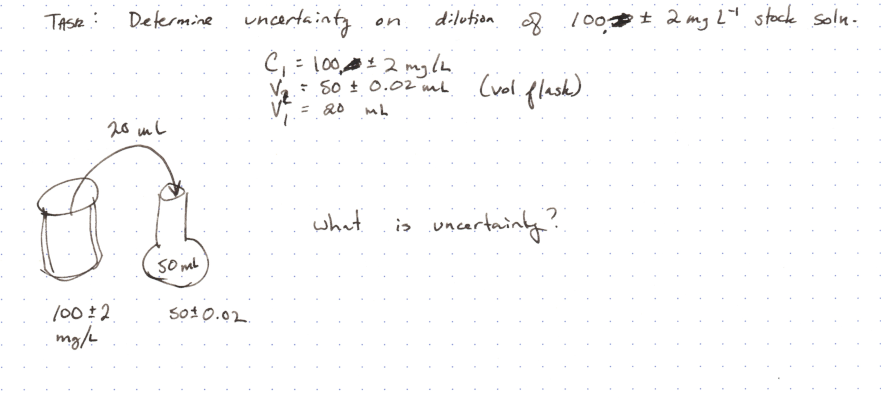 TASK: Determine uncertainty on dilution of 100 ± 2 mg L⁻¹ stock soln.
C₁ = 100 ± 2 mg/L
V₂ = 50 ± 0.02 mL (vol flask)
V₁ = 20 mL
20 mL
What is uncertainty?
50 mL
100 ± 2 50 ± 0.02
mg/L